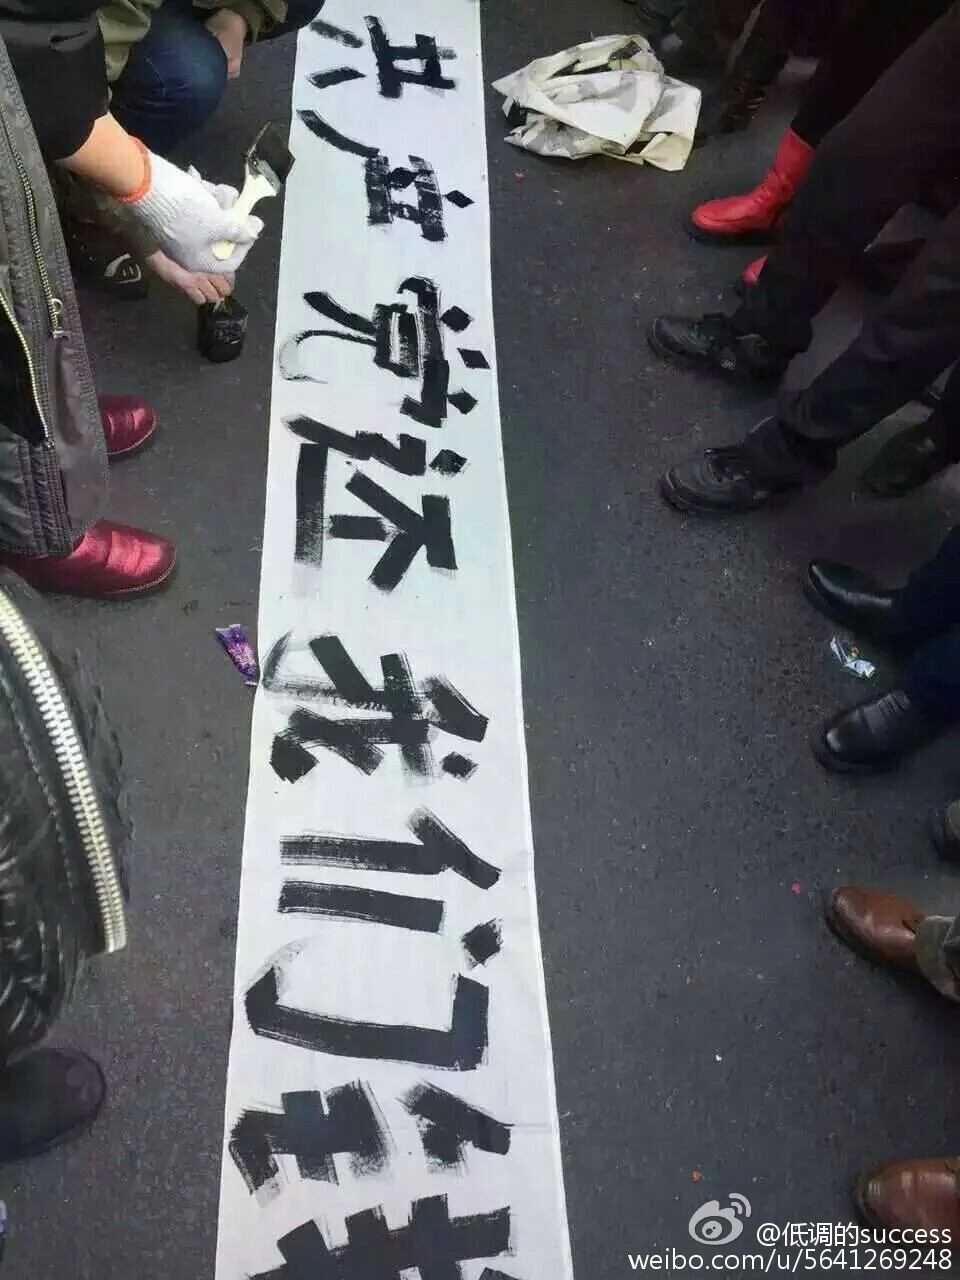 共产党还我们钱
@低调的success
weibo.com/u/5641269248